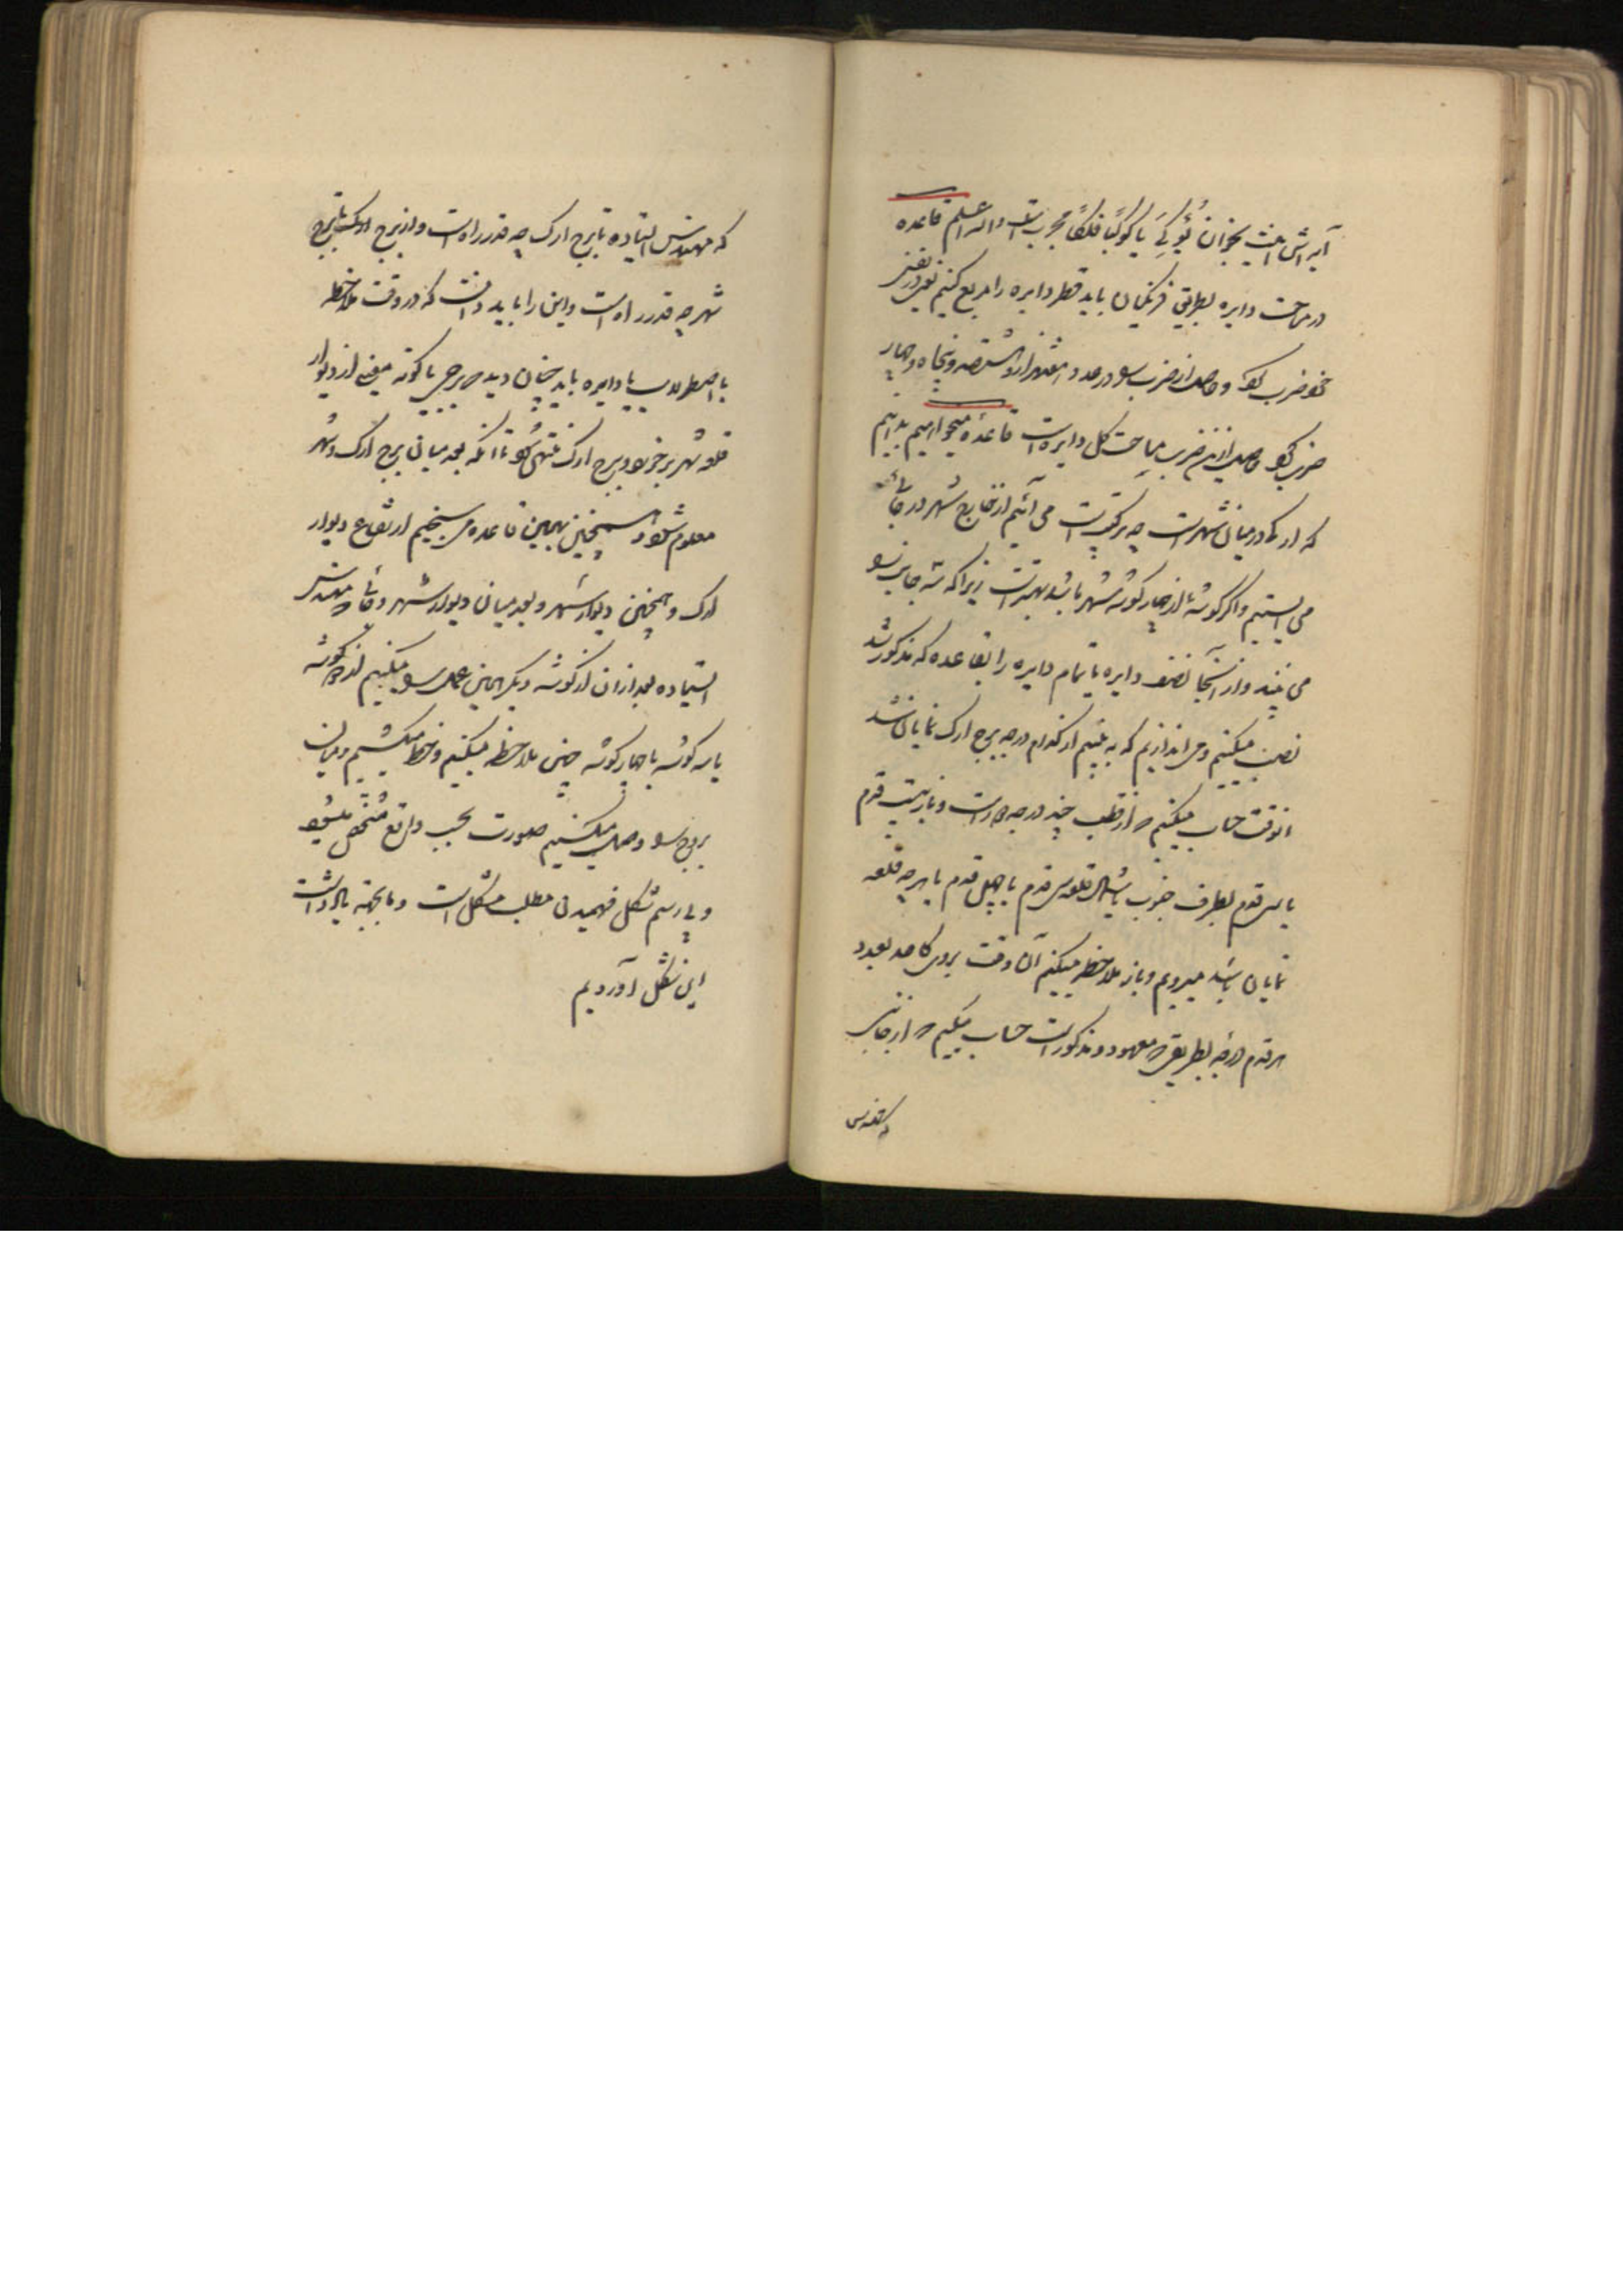 در مساحت دایره بطریق فرنگیان باید قطر دایره را مربع کنیم یعنی در نفس
خود ضرب کنیم و حاصل از ضرب را در عدد هفتهزار و هشتصد و پنجاه و چهار
ضرب کنیم حاصل ازین ضرب مساحت کل دایره است قاعده میخواهیم بدانیم
که ارک که در میان شهر است چه ترکیب است می آئیم از خارج شهر در جائی
می ایستیم و اگر گوشه از چهار گوشه شهر باشد بهتر است زیرا که سه جانب را
می بیند و از آنجا نصف دایره یا تمام دایره را بقاعده که مذکور شد
نصب میکنیم و می اندازیم که به بینیم از کدام درجه برج ارک نمایان شد
انوقت حساب میکنیم که از قطب چند درجه دور است و باز بیست قدم
یا سی قدم بطرف جنوب یا شمال قلعه سی قدم یا چهل قدم یا هر چه قلعه
نمایان باشد میرویم و باز ملاحظه میکنیم آن وقت بروی کاغذ بعدد
هر قدم درجه بطریقی که معهود و مذکور است حساب میکنیم که از جائی
که مهندس
که مهندس ایستاده تا برج ارک چه قدر راه است و از برج ارک تا برج
شهر چه قدر راه است و این را باید دانست که در وقت ملاحظه
با اصطرلاب یا دایره باید چنان دید که برجی یا گوشه معینی از دیوار
قلعه شهر بر خورد و برج ارک منتهی شود تا آنکه بعد میان برج ارک و شهر
معلوم شود و همچنین بهمین قاعده می سنجیم ارتفاع دیوار
ارک و همچنین دیوار شهر و بعد میان دیوار شهر و جائی که مهندس
ایستاده بعد از آن از گوشه دیگر همین عمل را میکنیم از دو گوشه
یا سه گوشه یا چهار گوشه چنین ملاحظه میکنیم و خط میکشیم و میان
بروج را وصل میکنیم صورت بحسب واقع مشخص میشود
و بی رسم شکل فهمیدن مطلب مشکل است و ما بجهة یادداشت
این شکل آوردیم